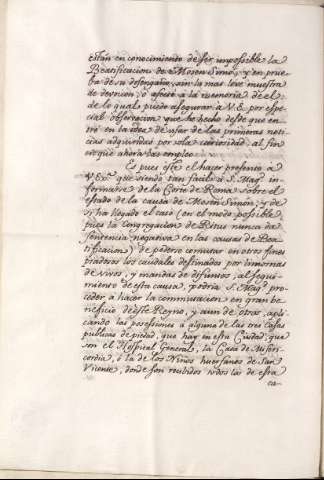 están en conocimiento de ser impossible la
Beatificacion de Mosen Simó, y en prue
ba de su desengaño, sin la mas leve muestra
de devocion, ô afecto à la memoria de el;
de lo qual puedo asegurar à V.E. por espe
cial observacion que he hecho desde que en
tré en la idea de usar de las primeras noti
cias adquiridas por sola curiosidad, al fin
en que ahora las empleo.
Es pues este el hacer presente à
V.Exc.ª que siendo tan facil à S. Mag.d
informarse de la Corte de Roma sobre el
estado de la causa de Mosen Simón; y de
si ha llegado el caso (en el modo possible,
pues la Congregacion de Ritus nunca da
sentencia negativa en las causas de Bea
tificacion) de poderse conmutar en otros fines
piadosos los caudales destinados por limosnas
de vivos, y mandas de difuntos, al segui
miento de esta causa, podria S. Mag.d pro
ceder à hacer la conmutacion en gran be
neficio de este Reyno, y aun de otros, apli
cando las posessiones à alguna de las tres Casas
publicas de piedad, que hay en esta Ciudad; que
son el Hospital General, la Casa de Miseri
cordia, ô la de los Niños huerfanos de San
Vicente, donde son recibidos todos los de esta
ca-